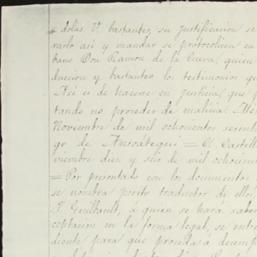 dolas V. bastantes, su justificacion se
varlo asi y mandar se protocolice en
bano Don Ramon de la Cueva, quien
ducion y bastantes los testimonios que
Asi es de hacerse en justicia, que p
tando no proceder de malicia.
Noviembre de mil ochocientos setent
go de Anzoategui = C. Castill
viembre diez y seis de mil ochocien
= Por presentado con los documentos
se nombra perito traductor de ellos
F. Guilbault, á quien se hará saber
ceptacion en la forma legal, se entr
diente para que proceda á desemp